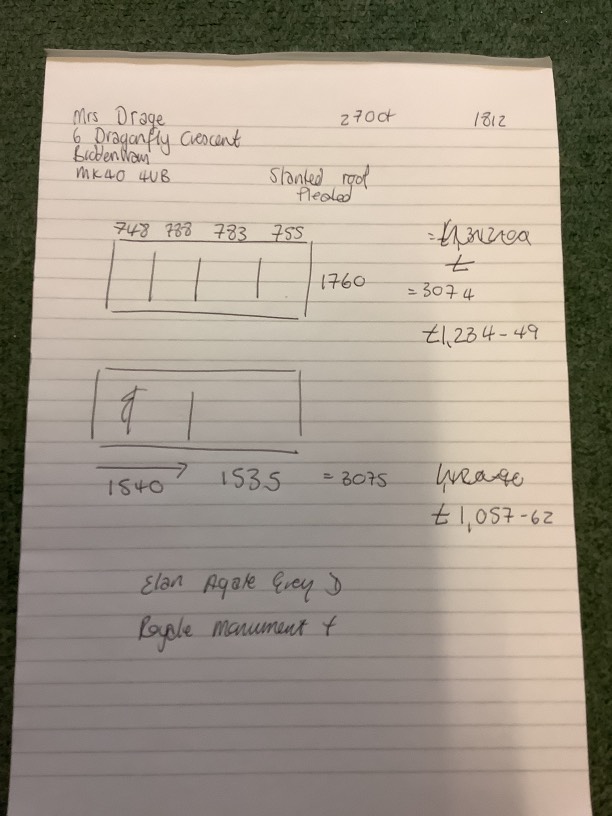 Mrs Drage 270ct 1812
6 Dragonfly Crescent
Biddenham
MK40 4UB Slanted roof
Pleated
748 788 783 755
1760
= 3074
£1,234-49
1540 1535 = 3075
£1,057-62
Elan Agate Grey D
Royale Monument